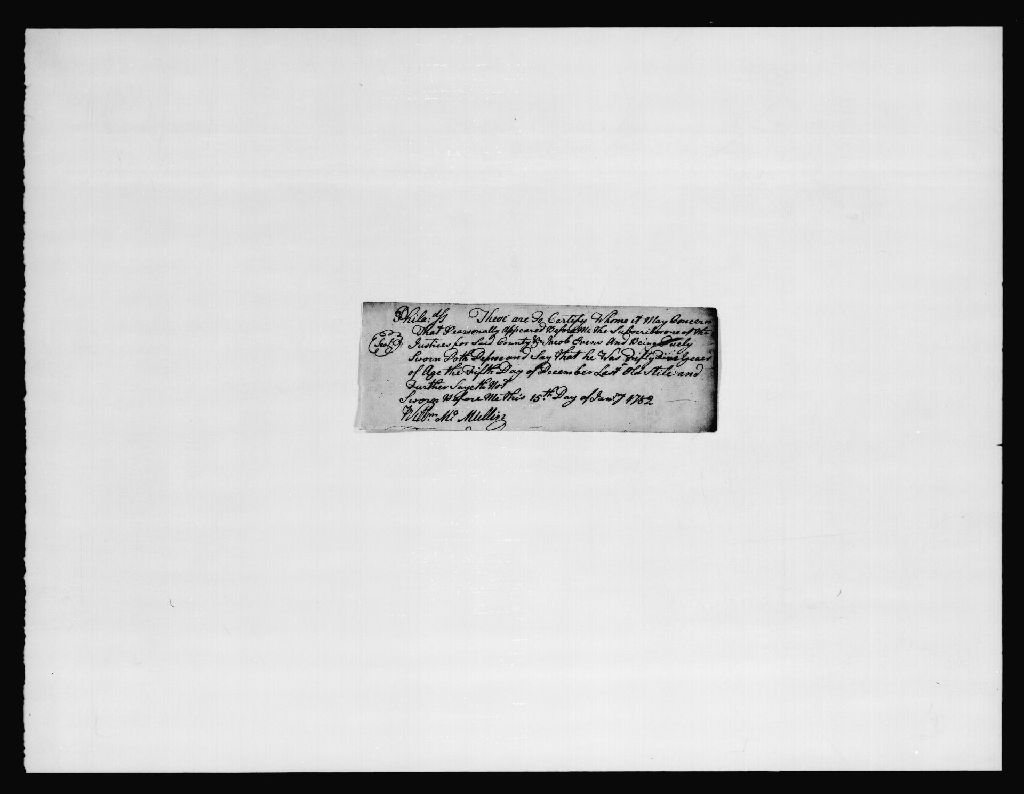 Phila: ss These are to Certify Whome it May Concern
That Personally Appeared Before Me the Subscriber one of the
Seal
Justices for Said County Jacob Evens And Being Duely
Sworn Doth Depose and Say that he Was Fifty Nine years
of Age the Fifth Day of December Last Old Stile and
Further Sayeth Not
Sworn Before Me this 15th Day of Jan'y 1782
Willm Mc Mullin